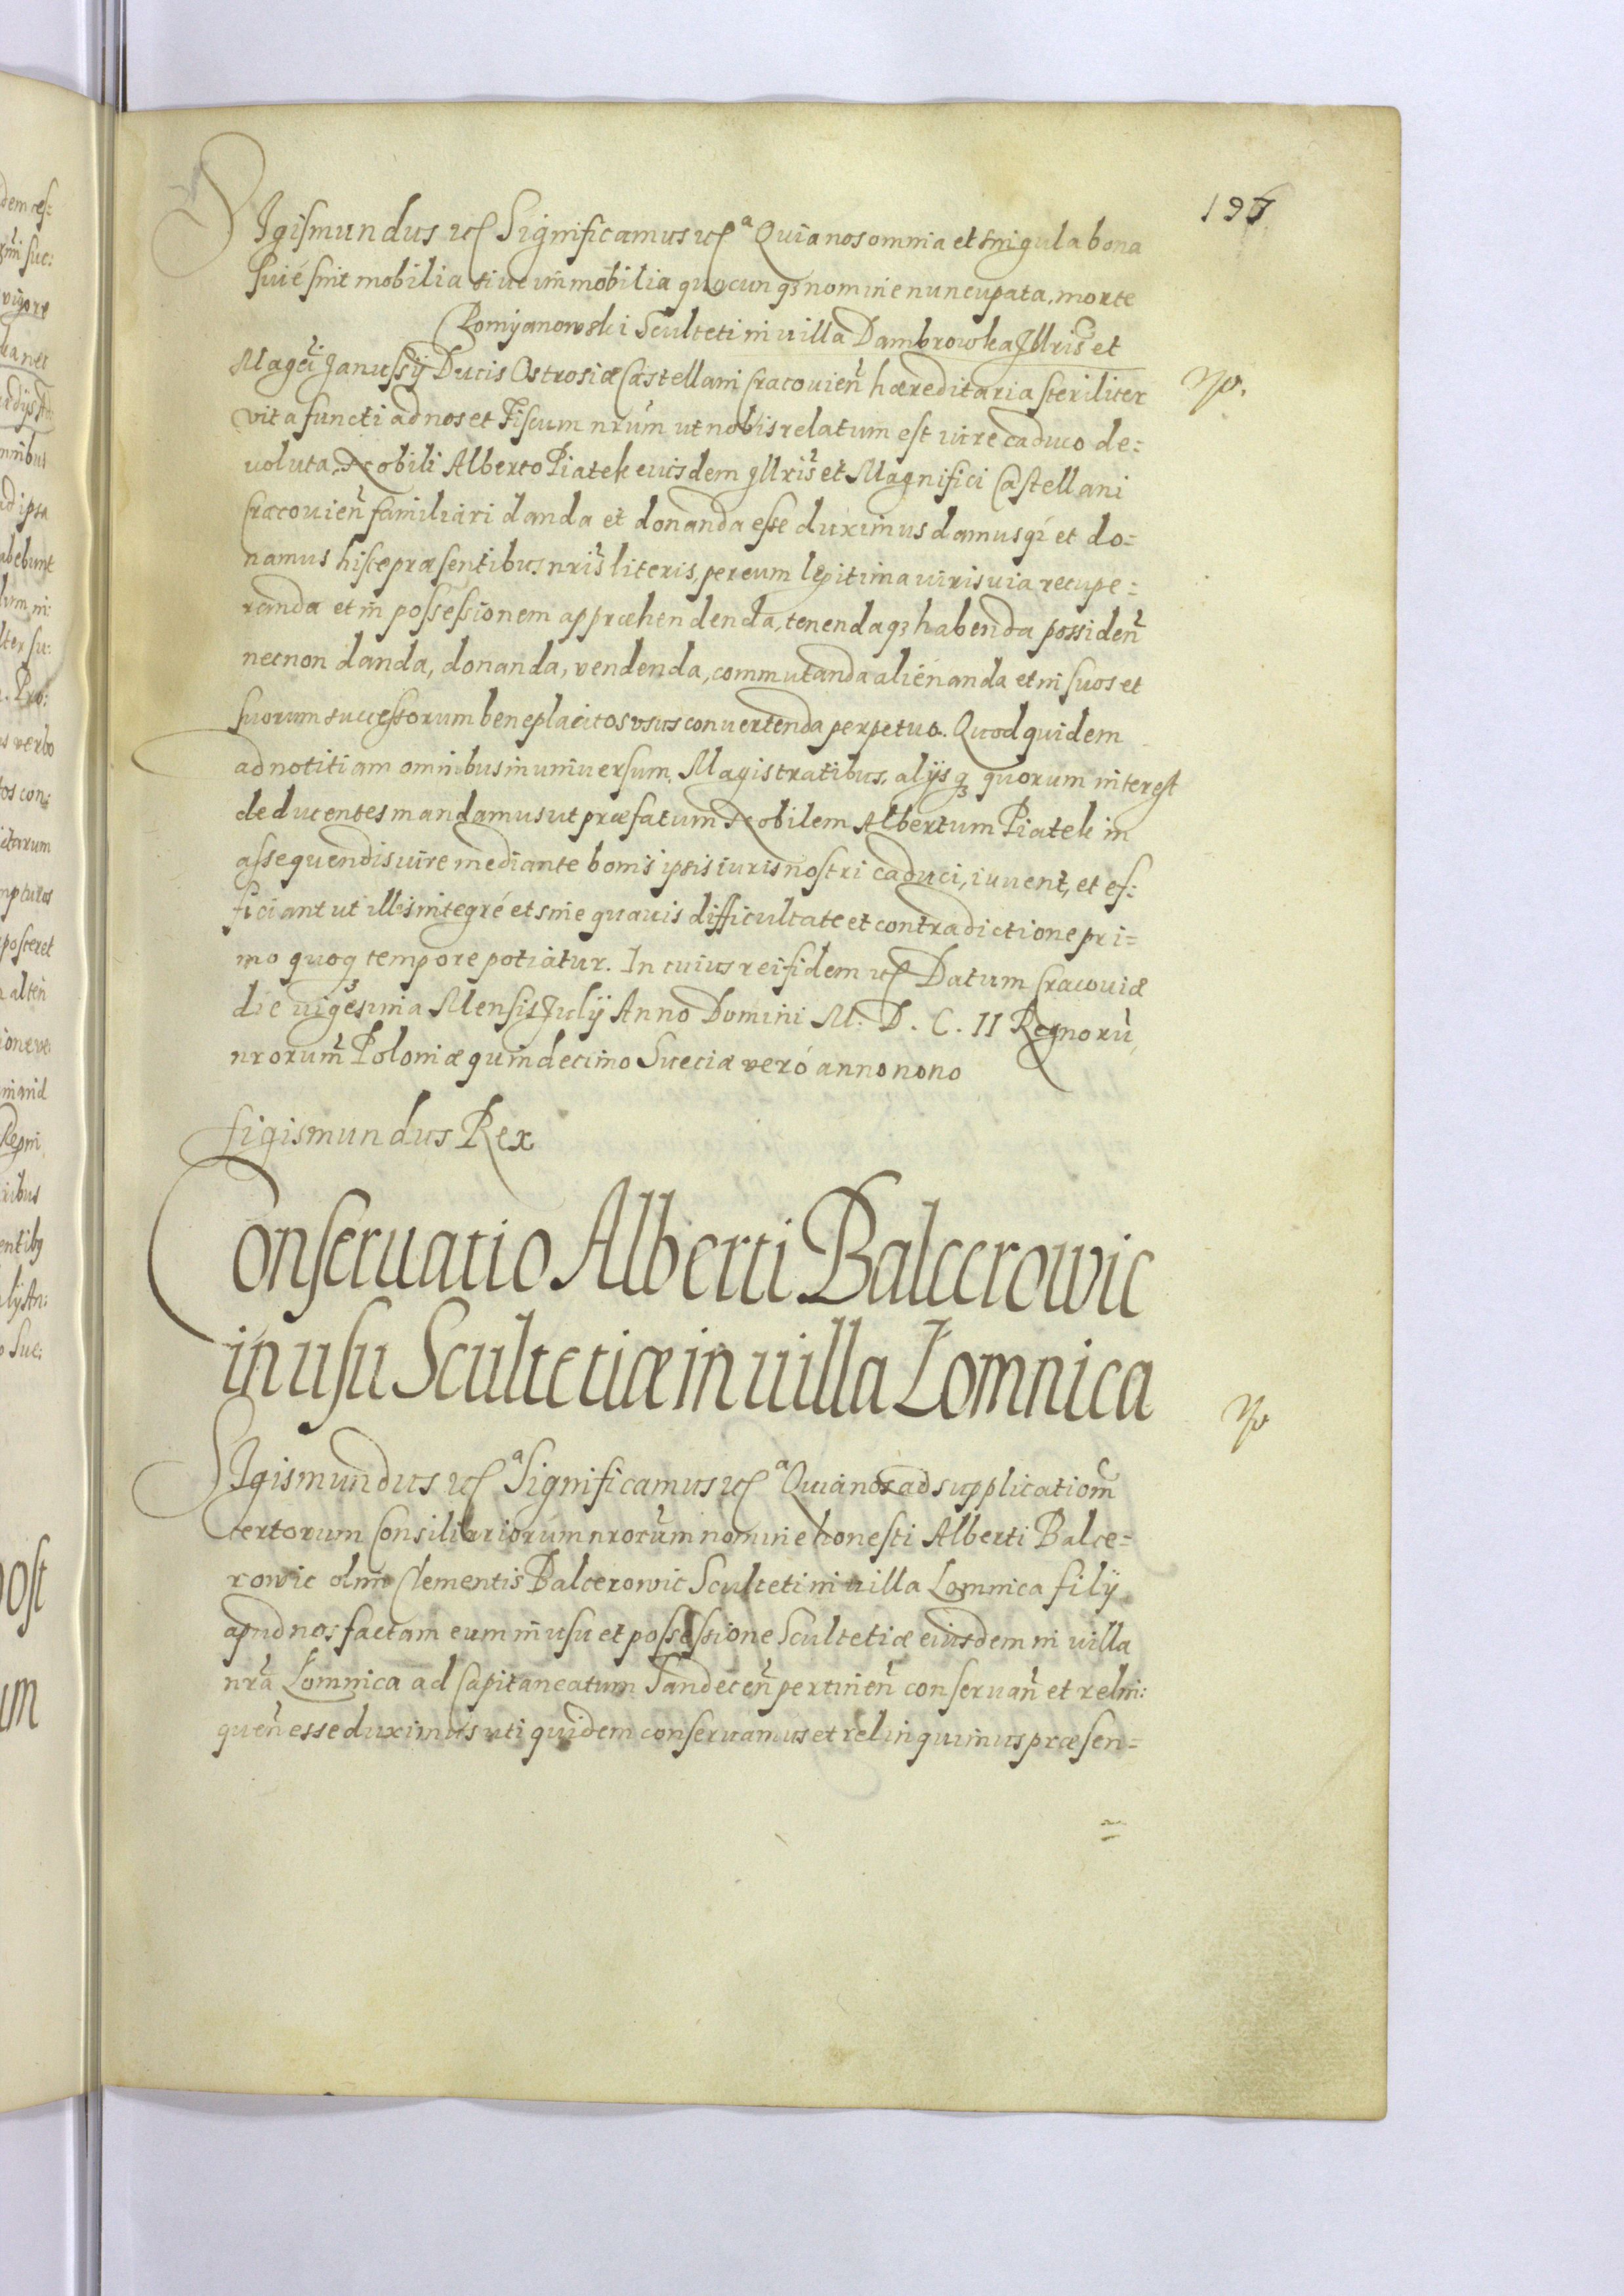 197
Sigismundus etc Significamus etc a Quia nos omnia et singula bona
siué sint mobilia siue immobilia quocunq3 nomine nuncupata, morte
Romyanowski Sculteti in villa Dambrowka Jllris et
Magci Janussÿ Ducis Ostrosiæ Castellani Cracouien hæreditaria steriliter
vita functi ad nos et Fiscum nrum ut nobis relatum est iure caduco de=
uoluta, Nobili Alberto Piatek eiusdem Jllris et Magnifici Castellani
Cracouien familiari danda et donanda esse duximus damusq et do=
namus hisce præsentibus nris literis, per eum legitima iuris via recupe=
randa et in possessionem appræhendenda, tenendaq3 habenda possiden
necnon danda, donanda, vendenda, commutanda aliénanda et in suos et
suorum successorum beneplacitos vsus conuertenda perpetuo. Quod quidem
ad notitiam omnibus in uniuersum, Magistratibus, alÿsq3 quorum interest
deducentes mandamus ut præfatum Nobilem Albertum Piatek in
assequendis iure mediante bonis ipsis iuris nostri caduci, iuuent, et ef=
ficiant ut illis integré et sine quauis difficultate et contradictione pri=
mo quoq3 tempore potiatur. In cuius rei fidem etc Datum Cracouiæ
die uigesima Mensis Julÿ Anno Domini M. D. C. II Regnorū
nrorum Poloniæ quindecimo Sueciæ veró anno nono
Sigismundus Rex
Conseruatio Alberti Balcerowic
in usu Scultetiæ in uilla Łomnica
Sigismundus etc a Significamus etc a Quia nos ad supplicationem
certorum Consiliariorum nrorum nomine honesti Alberti Balce=
rowic olim Clementis Balcerowic Sculteti in uilla Lomnica filÿ
apud nos factam eum in usu et possessione Scultetiæ eiusdem in uilla
nra Łomnica ad Capitaneatum Sandecen pertinen conseruan et relin:
quen esse duximus uti quidem conseruamus et relinquimus præsen=